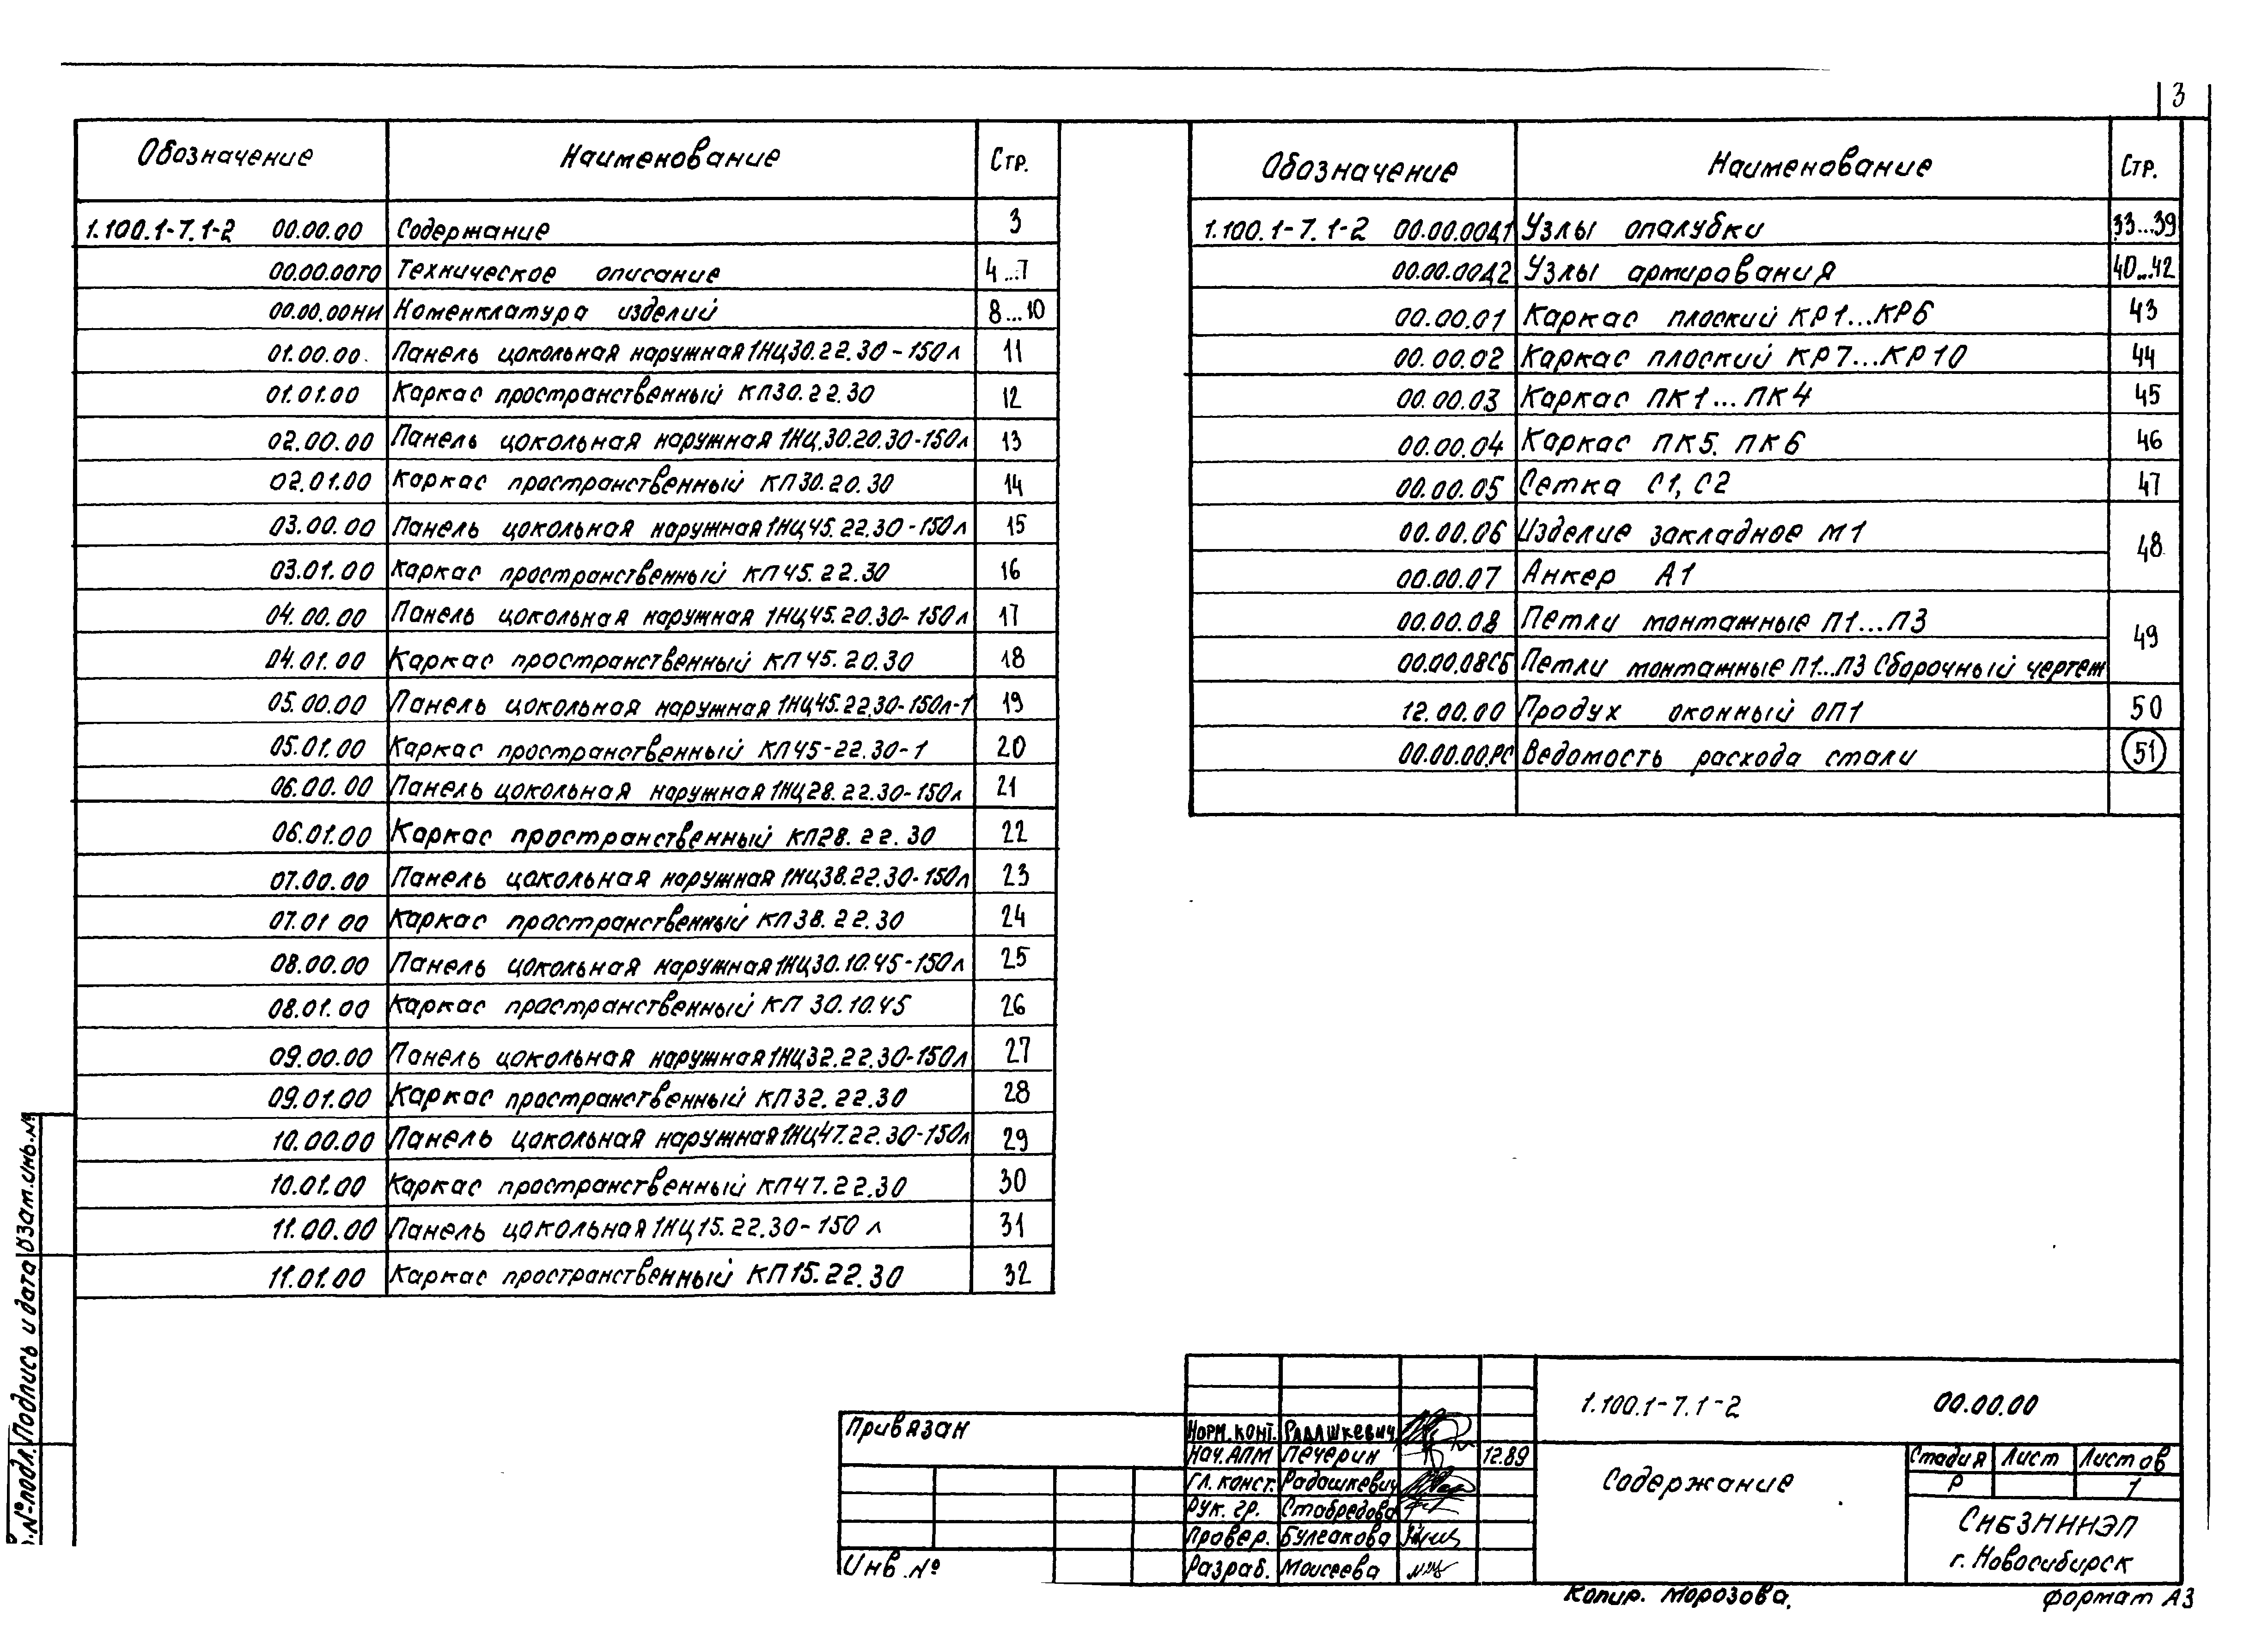 3
Обозначение Наименование Стр.
1.100.1-7.1-2 00.00.00 Содержание 3
00.00.00ТО Техническое описание 4...7
00.00.00НИ Номенклатура изделий 8...10
01.00.00. Панель цокольная наружная 1НЦ30.22.30-150л 11
01.01.00 Каркас пространственный КП30.22.30 12
02.00.00 Панель цокольная наружная 1НЦ.30.20.30-150л 13
02.01.00 Каркас пространственный КП30.20.30 14
03.00.00 Панель цокольная наружная 1НЦ45.22.30-150л 15
03.01.00 Каркас пространственный КП45.22.30 16
04.00.00 Панель цокольная наружная 1НЦ45.20.30-150л 17
04.01.00 Каркас пространственный КП45.20.30 18
05.00.00 Панель цокольная наружная 1НЦ45.22.30-150л-1 19
05.01.00 Каркас пространственный КП45-22.30-1 20
06.00.00 Панель цокольная наружная 1НЦ28.22.30-150л 21
06.01.00 Каркас пространственный КП28.22.30 22
07.00.00 Панель цокольная наружная 1НЦ38.22.30-150л 23
07.01 00 Каркас пространственный КП38.22.30 24
08.00.00 Панель цокольная наружная 1НЦ30.10.45-150л 25
08.01.00 Каркас пространственный КП 30.10.45 26
09.00.00 Панель цокольная наружная 1НЦ32.22.30-150л 27
09.01.00 Каркас пространственный КП32.22.30 28
10.00.00 Панель цокольная наружная 1НЦ47.22.30-150л 29
10.01.00 Каркас пространственный КП47.22.30 30
11.00.00 Панель цокольная 1НЦ15.22.30-150 л 31
11.01.00 Каркас пространственный КП15.22.30 32
Обозначение Наименование Стр.
1.100.1-7.1-2 00.00.00Д1 Узлы опалубки 33...39
00.00.00Д2 Узлы армирования 40...42
00.00.01 Каркас плоский КР1...КР6 43
00.00.02 Каркас плоский КР7...КР10 44
00.00.03 Каркас ПК1...ПК4 45
00.00.04 Каркас ПК5. ПК6 46
00.00.05 Сетка С1, С2 47
00.00.06 Изделие закладное М1 48
00.00.07 Анкер А1
00.00.08 Петли монтажные П1...П3 49
00.00.08СБ Петли монтажные П1...П3 Сборочный чертеж
12.00.00 Продух оконный ОП1 50
00.00.00.РС Ведомость расхода стали 51
Взам.инв.№
Подпись и дата
№ подл.
Привязан
Инв.№
Норм.конт. Радашкевич
Нач.АПМ Печерин 12.89
Гл. конст. Радашкевич
Рук. гр. Стабредова
Провер. Булгакова
Разраб. Моисеева
1.100.1-7.1-2 00.00.00
Содержание
Стадия Лист Листов
Р 1
СибЗНИИЭП
г. Новосибирск
Копир. Морозова.
Формат А3